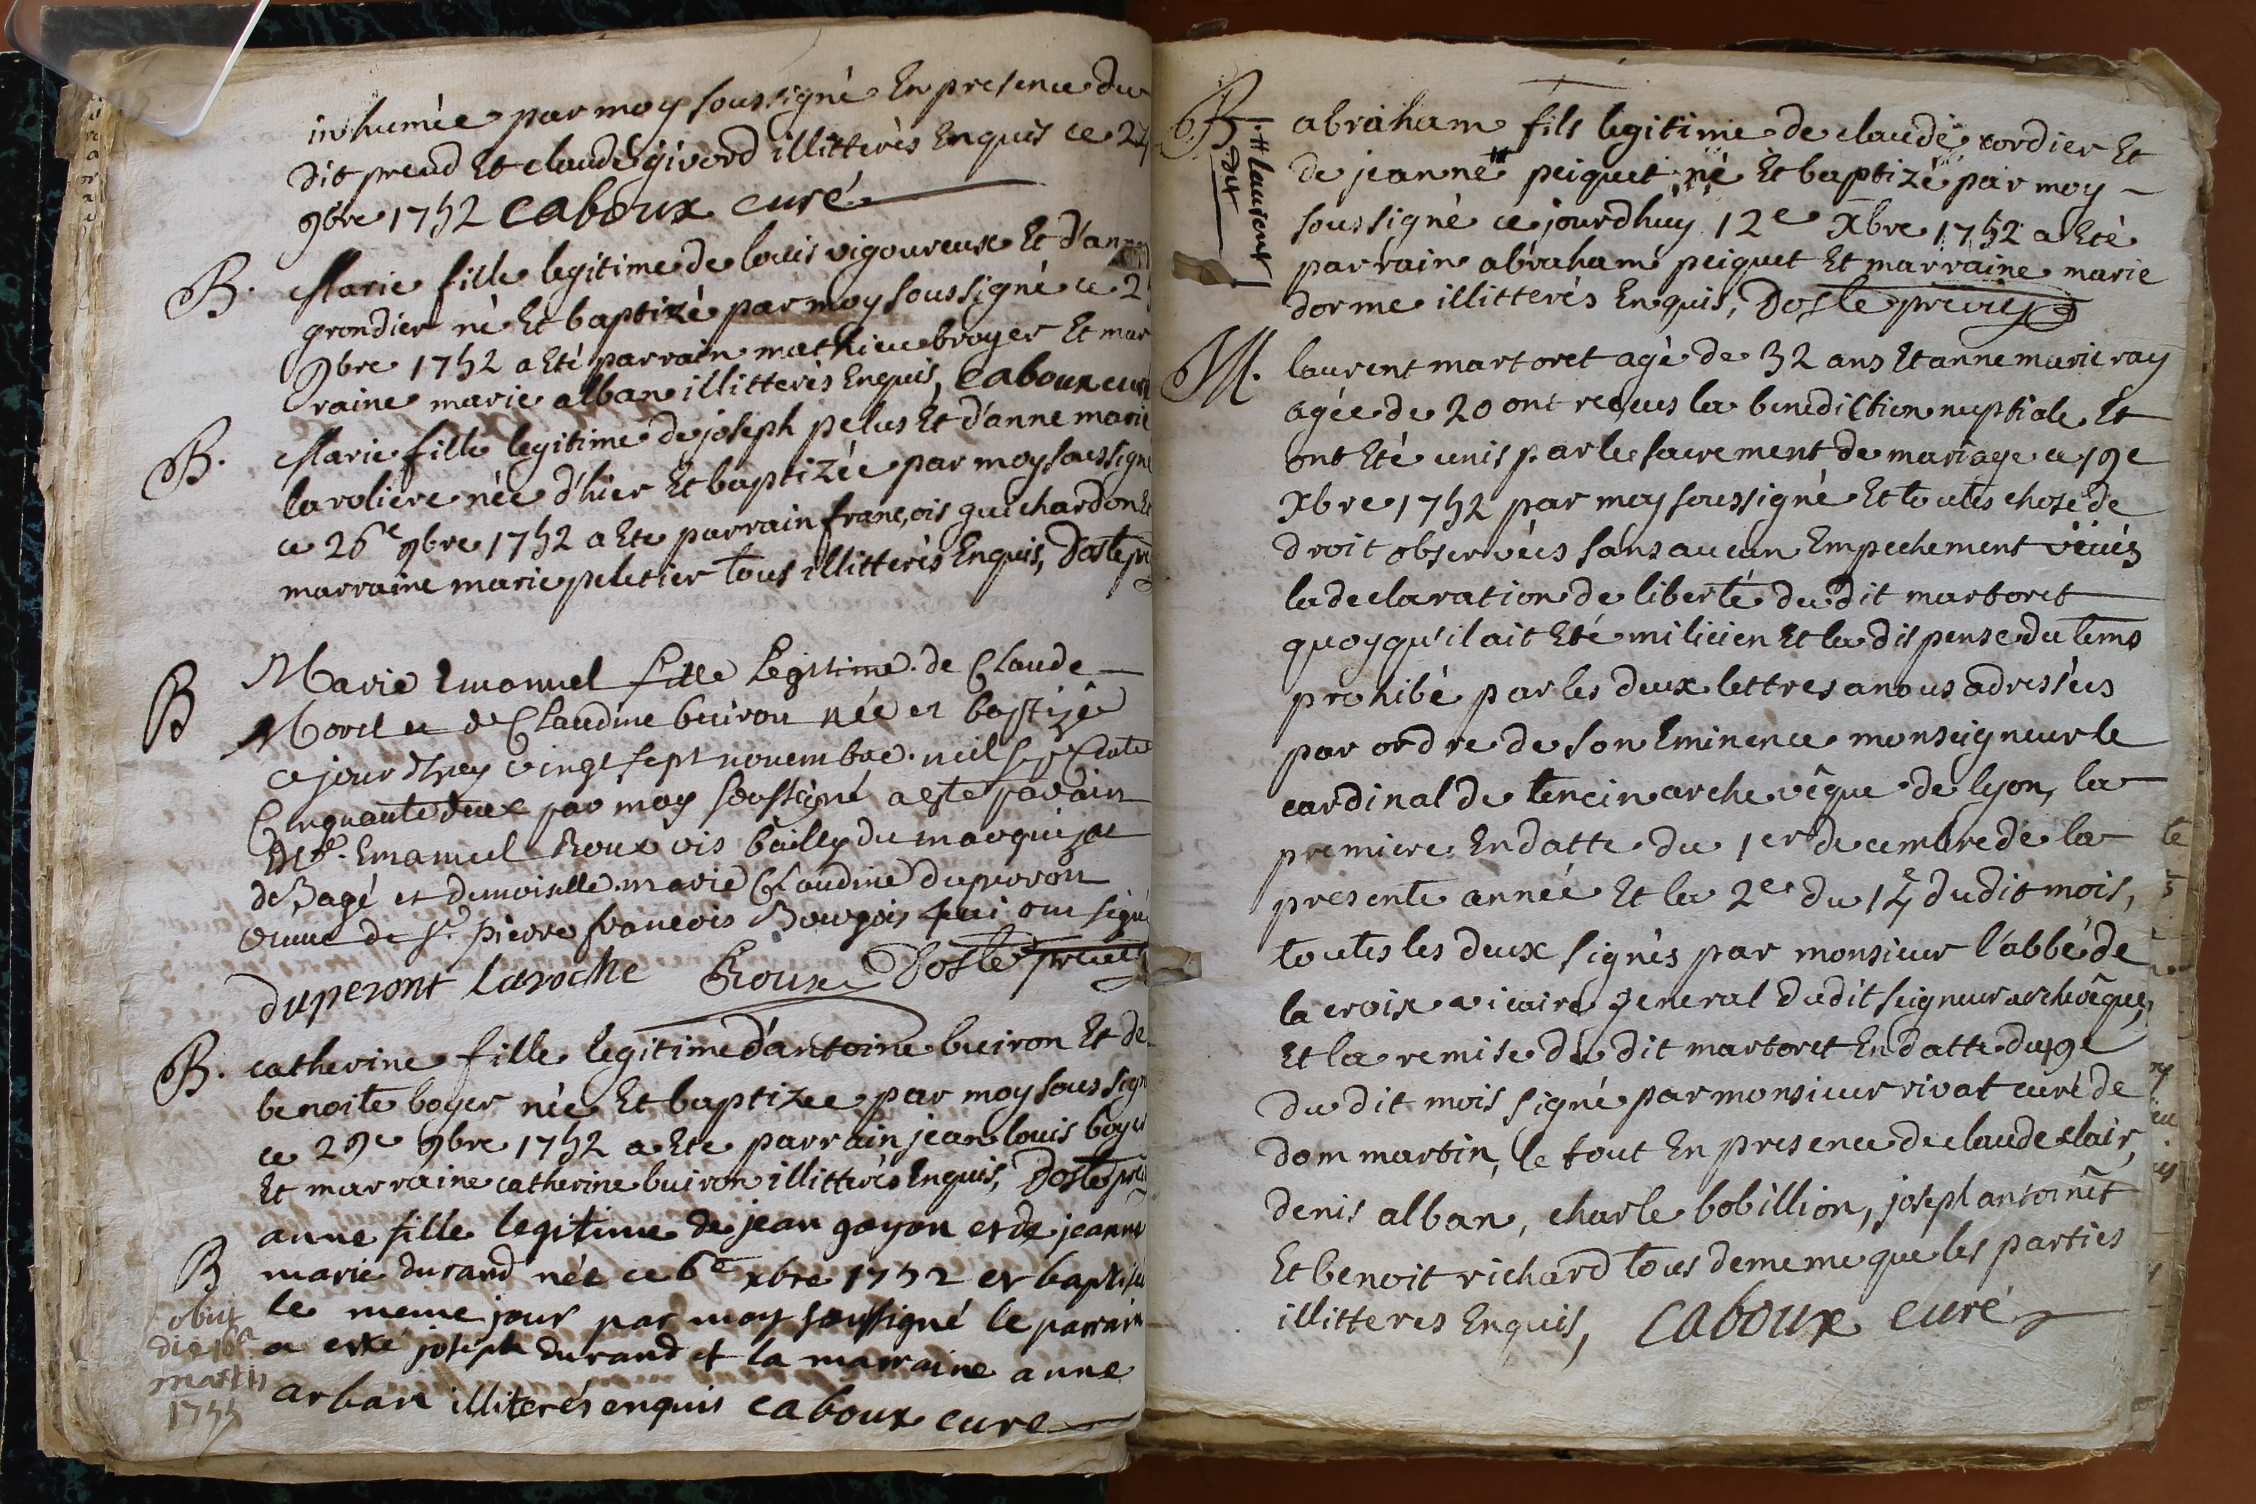 inhumée par moy soussigné En presence du
dit preud Et claude givord illitterés Enquis ce 24
9bre 1752 caboux curé
B. Marie fille legitime de louis vigoureux Et d'anne
grondier né Et baptizé par moy soussigné ce 2
9bre 1752 a Eté parrain mathieu broyer Et mar
raine marie alban illitterés Enquis, caboux curé
B. Marie fille legitime de joseph pelus Et d'anne marie
laroliere née d'hier Et baptizée par moy soussigné
ce 26e 9bre 1752 a Ete parrain françois guichardon Et
marraine marie peletier tous illitterés Enquis, Dosle
B Marie Emanuel fille Legitime de Claude
Morel et de Claudine buiron née et baptizée
ce jourdhuy vingt sept novembre mil sept cents
Cinquante deux par moy soussigné a esté parain
Emanuel Roux vis bailly du marquisat
de Bagé et demoiselle marie Claudine duperon
femme de Sr. pierre françois Bourgois qui ont signé
duperont laroche Roux Dosle
B. catherine fille legitime d'antoine buiron Et de
benoite boyer née Et baptizee par moy soussigné
ce 29e 9bre 1752 a Ete parrain jean louis boyer
Et marraine catherine buiron illitterés Enquis, Dosle
B anne fille legitime de jean goyon et de jeanne
marie durand née ce 6e xbre 1752 et baptisée
le meme jour par moy soussigné le parrain
a esté joseph durand et la marraine anne
arban illiterés enquis caboux cure
obiit
die 16a
martii
1755
B abraham fils legitime de claude cordier Et
de jeanne # peiquet né Et baptizé par moy
soussigné ce jourdhuy 12e Xbre 1752 a Eté
parrain abraham peiquet Et marraine marie
dorme illitterés Enquis, Dosle
# laurent
dit
M. laurent martoret agé de 32 ans Et anne marie ray
agée de 20 ont reçeus la benediction nuptiale Et
ont Eté unis par le sacrement de mariage ce 19e
Xbre 1752 par moy soussigné Et toutes chose de
droit observées sans aucun Empechement
la declaration de liberté du dit martoret
quoyqu'il ait Eté milicien Et la dispense du tems
prohibé par les deux lettres a nous adressées
par ordre de son Eminence monseigneur le
cardinal de tencin archevêque de lyon, la
premiere En datte du 1er decembre de la
presente année Et la 2e du 14e dudit mois,
toutes les deux signés par monsieur l'abbé de
la croix vicaire general dudit seigneur archevêque,
Et la remise du dit martoret En datte du 19e
du dit mois signé par monsieur rivat curé de
dommartin, le tout En presence de claude clair,
denis alban, charle bobillion, joseph antoinêt
Et benoit richard tous de meme que les parties
illitteres Enquis, caboux curé